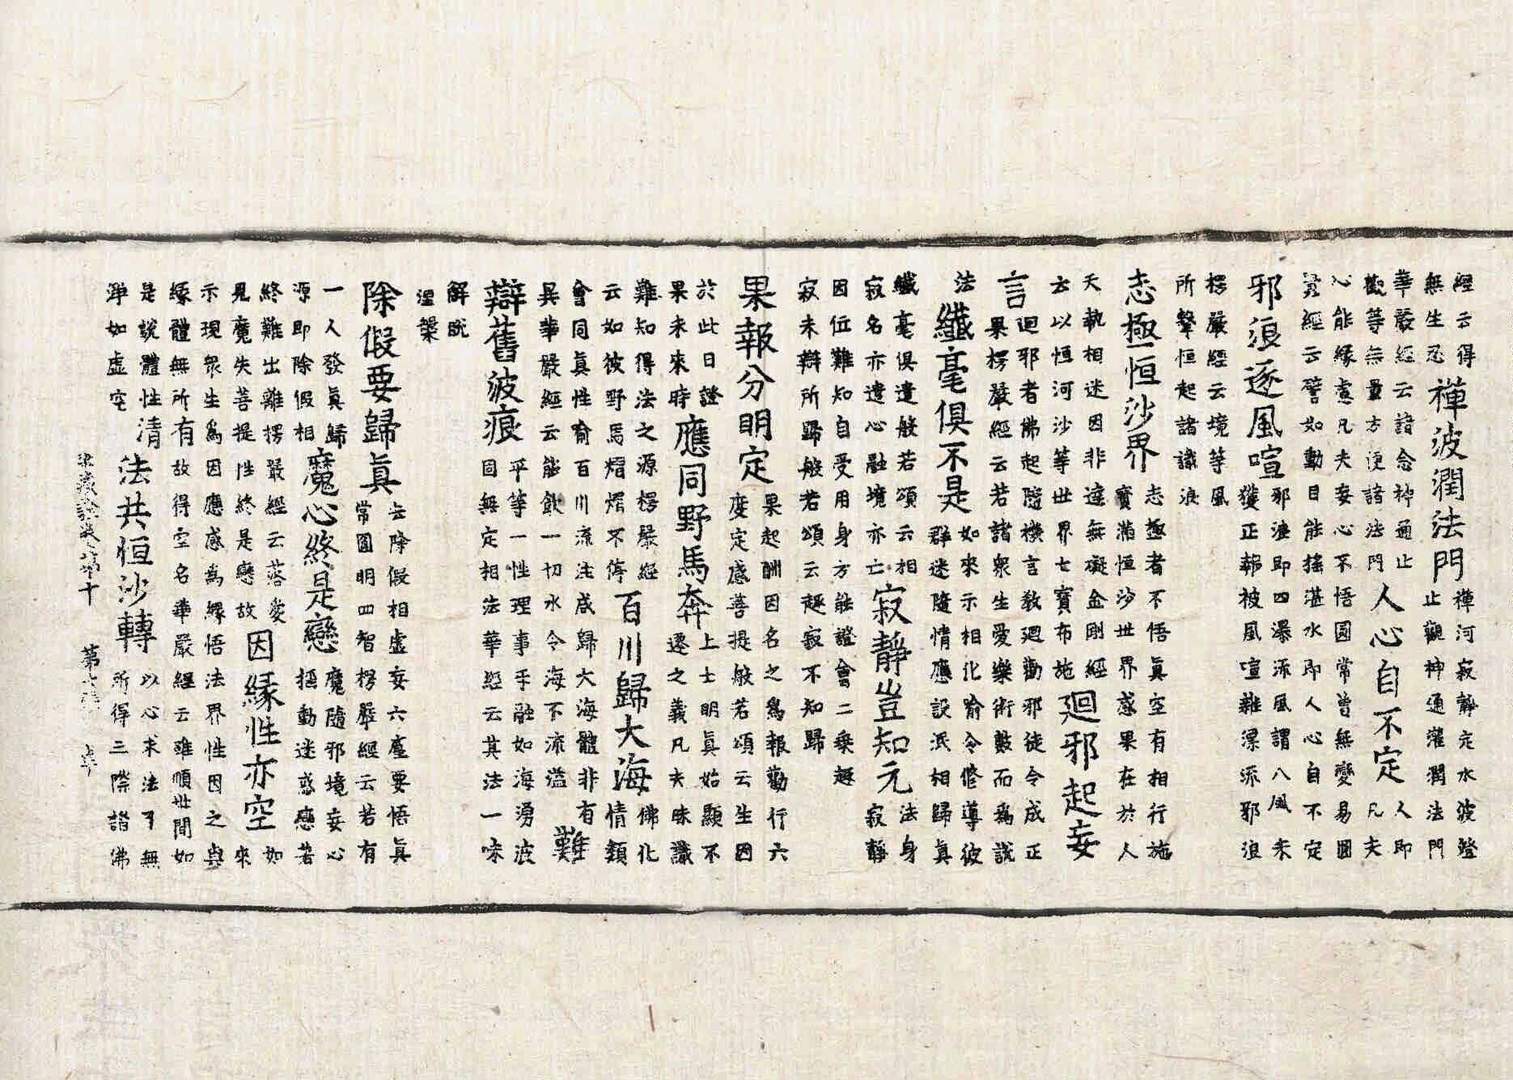 經云得
無生忍
禪波潤法門
禪河寂靜定水波澄
止觀神通灌潤法門
華嚴經云諸念神通止
觀等無量方便諸法門
人心自不定
人即
凡夫
心能緣慮凡夫妄心不悟圓常曾無變易圓
覺經云譬如動目能搖湛水即人心自不定
邪浪逐風喧
邪浪即四瀑流風謂八風未
獲正報被風喧雜漂流邪浪
楞嚴經云境等風
所擊恒起諸識浪
志極恒沙界
志極者不悟真空有相行施
寶滿恒沙世界感果在於人
天執相迷因非達無礙金剛經
云以恒河沙等世界七寶布施
迴邪起妄
言
迴邪者佛起隨機言教迴勸邪徒令成正
果楞嚴經云若諸衆生愛樂術數而爲說
法
纖毫俱不是
如來示相化喻令修導彼
群迷隨情應設派相歸真
纖毫俱遣般若頌云相
寂名亦遣心融境亦亡
寂靜豈知元
法身
寂靜
因位難知自受用身方能證會二乘趣
寂未辯所歸般若頌云趣寂不知歸
果報分明定
果起酬因名之爲報勤行六
度定感菩提般若頌云生因
於此日證
果未來時
應同野馬奔
上士明真始顯不
遷之義凡夫昧識
難知得法之源楞嚴經
云如彼野馬熠熠不停
百川歸大海
佛化
情類
會同真性喻百川流注咸歸大海體非有
異華嚴經云能飲一切水令海不流溢
難
辯舊波痕
平等一性理事手融如海湧波
同無定相法華經云其法一味
解脫
涅槃
除假要歸眞
去除假相虛妄六塵要悟眞
常圓明四智楞嚴經云若有
一人發眞歸
源即除假相
魔心終是戀
魔隨邪境妄心
搖動迷惑戀著
終難出離楞嚴經云落愛
見魔失菩提性終是戀故
因緣性亦空
如
來
示現衆生爲因應感爲緣悟法界性因之與
緣體無所有故得空名華嚴經云雖順世間如
是說體性清
淨如虛空
法共恒沙轉
以心求法了無
所得三際諸佛